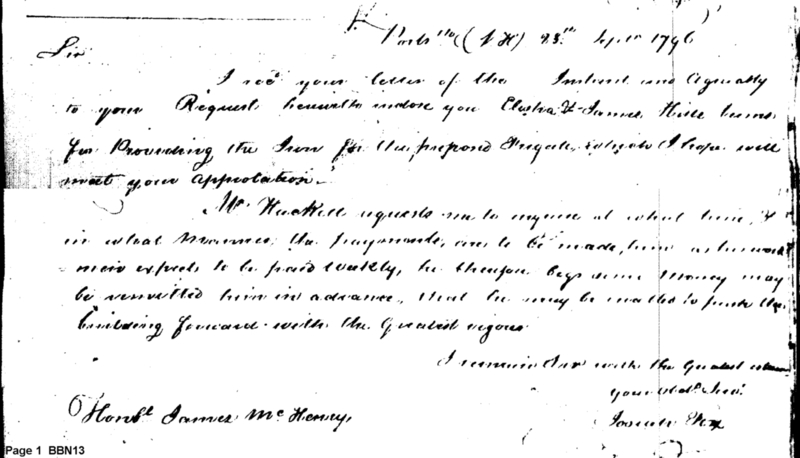 Ports mo (NH) 23.d Sepr 1796
Sir
I recd your letter of the Instant and Agreeably
to your Request herewith inclose you Elisha & James Hill's terms
for Providing the Iron for the proposed Frigate, which I hope will
meet your Approbation.
Mr Hackett requests me to inquire at what time, &
in what Manner the payments, are to be made, him as the work
men expects to be paid Weekly, he therefore begs some Money may
be remitted him in advance, that he may be enabled to push the
building forward with the Greatest vigour
I remain Sir with the Greatest esteem
your obdt. Servt.
Josiah Fox
Honble James McHenry,
Page 1 BBN13